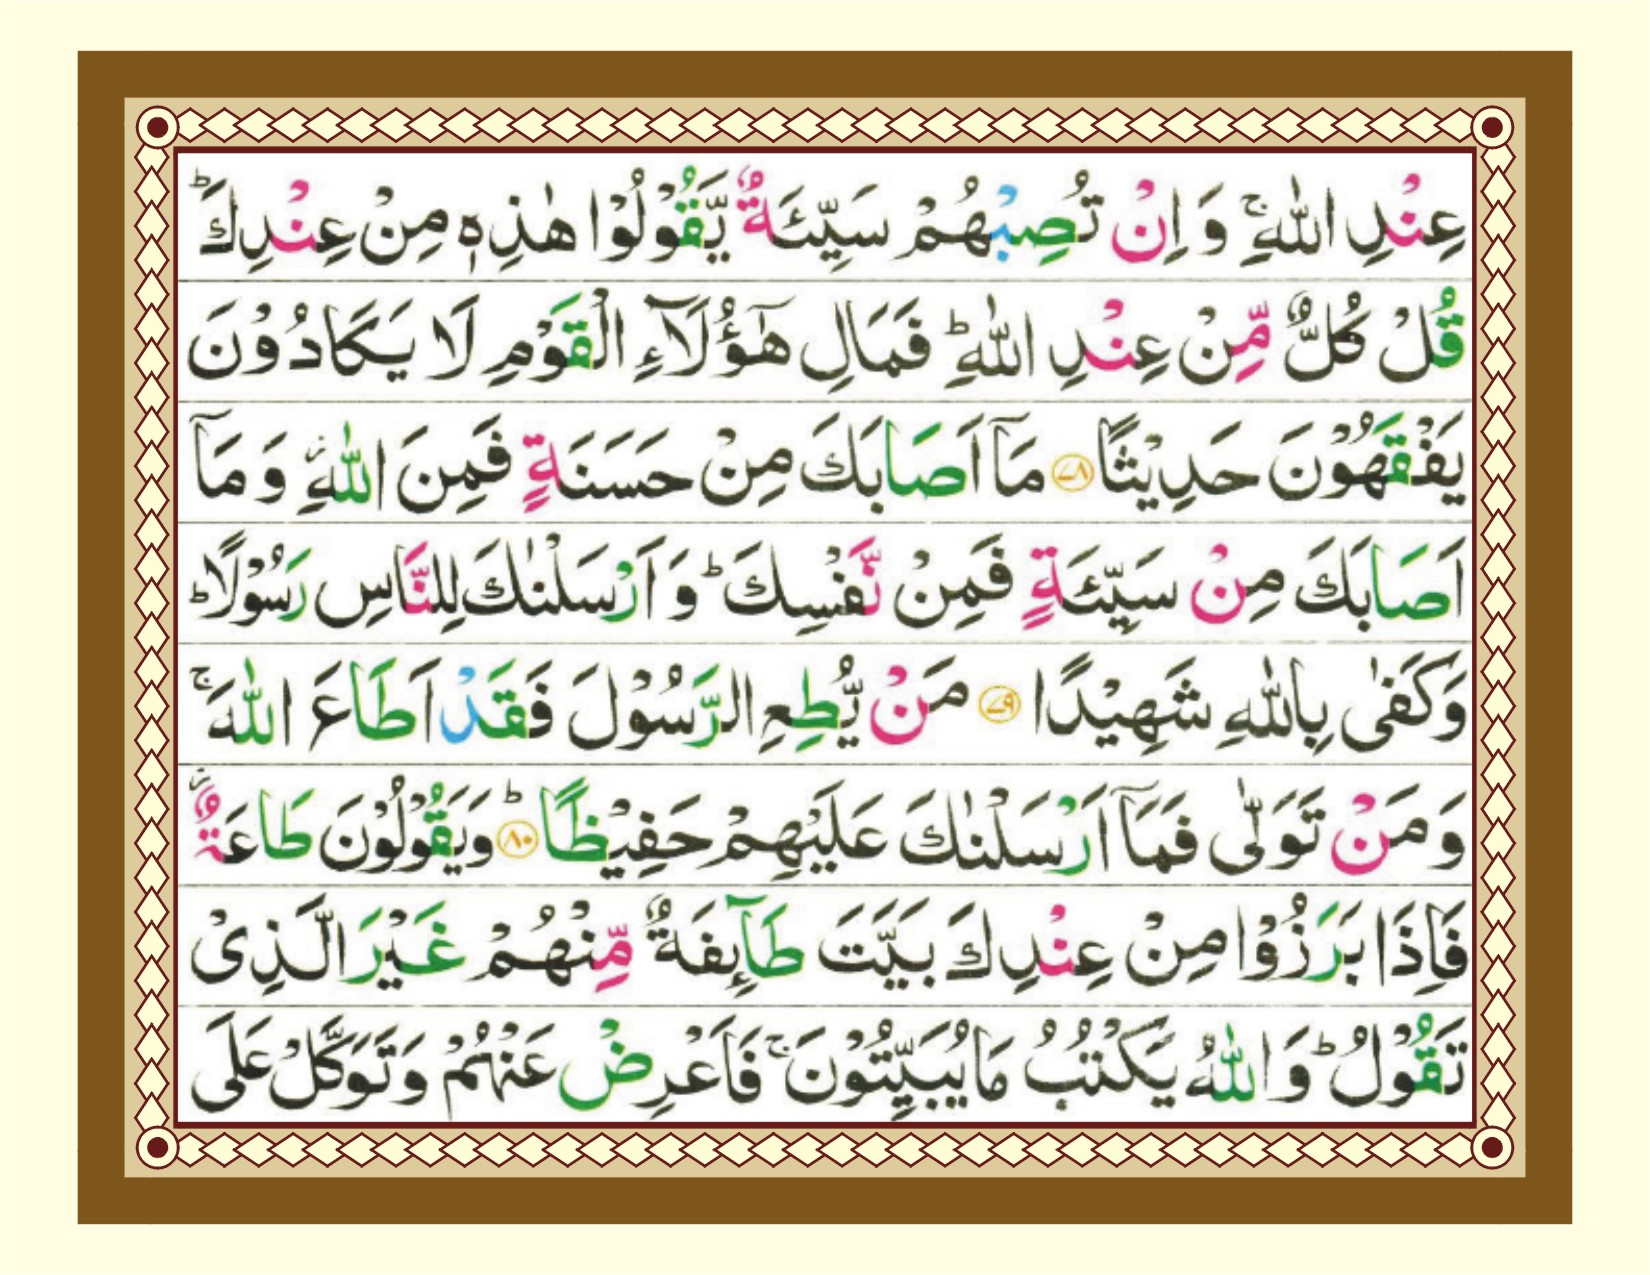 عِنْدِ اللّٰهِ ۚ وَ اِنْ تُصِبْهُمْ سَیِّئَةٌ یَّقُوْلُوْا هٰذِهٖ مِنْ عِنْدِكَ ؕ
قُلْ كُلٌّ مِّنْ عِنْدِ اللّٰهِ ؕ فَمَالِ هٰۤؤُلَآءِ الْقَوْمِ لَا یَكَادُوْنَ
یَفْقَهُوْنَ حَدِیْثًا ۷۸ مَاۤ اَصَابَكَ مِنْ حَسَنَةٍ فَمِنَ اللّٰهِ ؗ وَ مَاۤ
اَصَابَكَ مِنْ سَیِّئَةٍ فَمِنْ نَّفْسِكَ ؕ وَ اَرْسَلْنٰكَ لِلنَّاسِ رَسُوْلًا ؕ
وَكَفٰی بِاللّٰهِ شَهِیْدًا ۷۹ مَنْ یُّطِعِ الرَّسُوْلَ فَقَدْ اَطَاعَ اللّٰهَ ۚ
وَ مَنْ تَوَلّٰی فَمَاۤ اَرْسَلْنٰكَ عَلَیْهِمْ حَفِیْظًا ؕ ۸۰ وَیَقُوْلُوْنَ طَاعَةٌ ؗ
فَاِذَا بَرَزُوْا مِنْ عِنْدِكَ بَیَّتَ طَآىِٕفَةٌ مِّنْهُمْ غَیْرَ الَّذِیْ
تَقُوْلُ ؕ وَ اللّٰهُ یَكْتُبُ مَا یُبَیِّتُوْنَ ۚ فَاَعْرِضْ عَنْهُمْ وَتَوَكَّلْ عَلَی